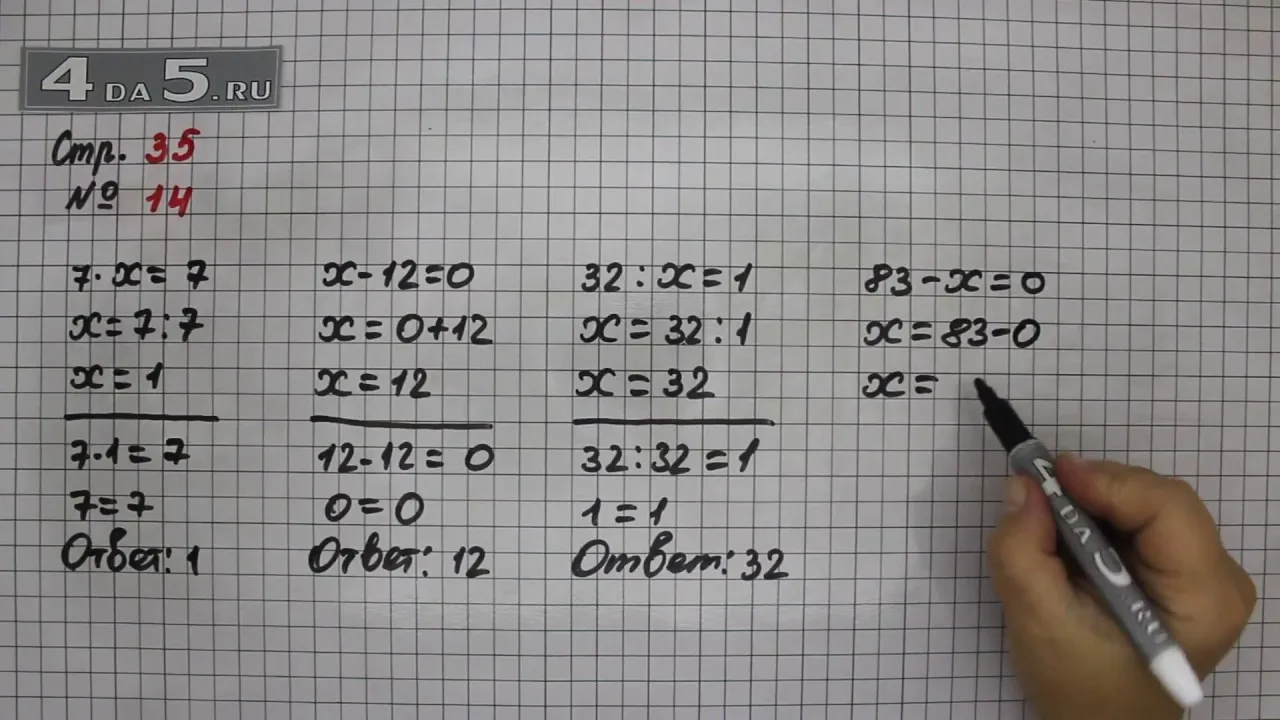 4 DA 5.RU
Стр. 35
№ 14
7·x=7
x=7:7
x=1
7·1=7
7=7
Ответ: 1
x-12=0
x=0+12
x=12
12-12=0
0=0
Ответ: 12
32:x=1
x=32:1
x=32
32:32=1
1=1
Ответ: 32
83-x=0
x=83-0
x=
4 DA 5.RU